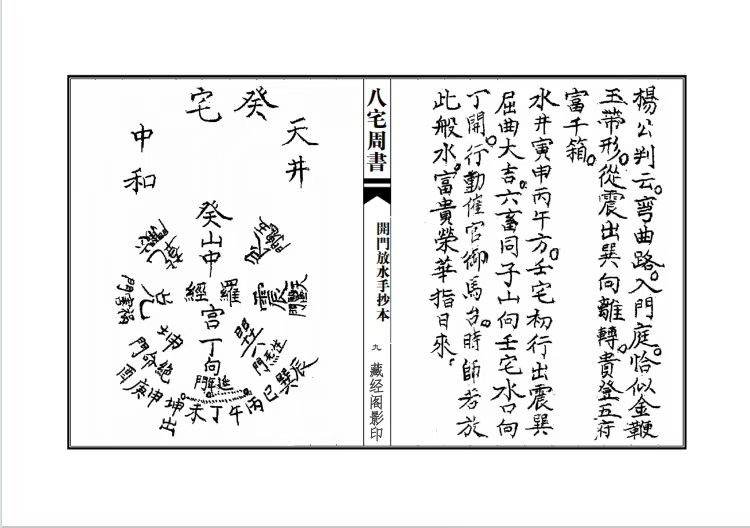 楊公判云。彎曲路。入門庭。恰似金鞭
玉帶形。從震出巽向離轉。貴登五府
富千箱。
水井寅申丙午方。壬宅初行出震巽
屈曲大吉。六畜同子山向壬宅水口向
丁開。行動催官御馬台。時師若放
此般水。富貴榮華指日來。
八宅周書
開門放水手抄本
九
藏经阁影印
癸宅
天井
中和
癸山中
羅經
宮
丁向
震
兌
坤
命門
絕
巽辰
巳
丙
午
丁
未
坤出
申
庚
酉